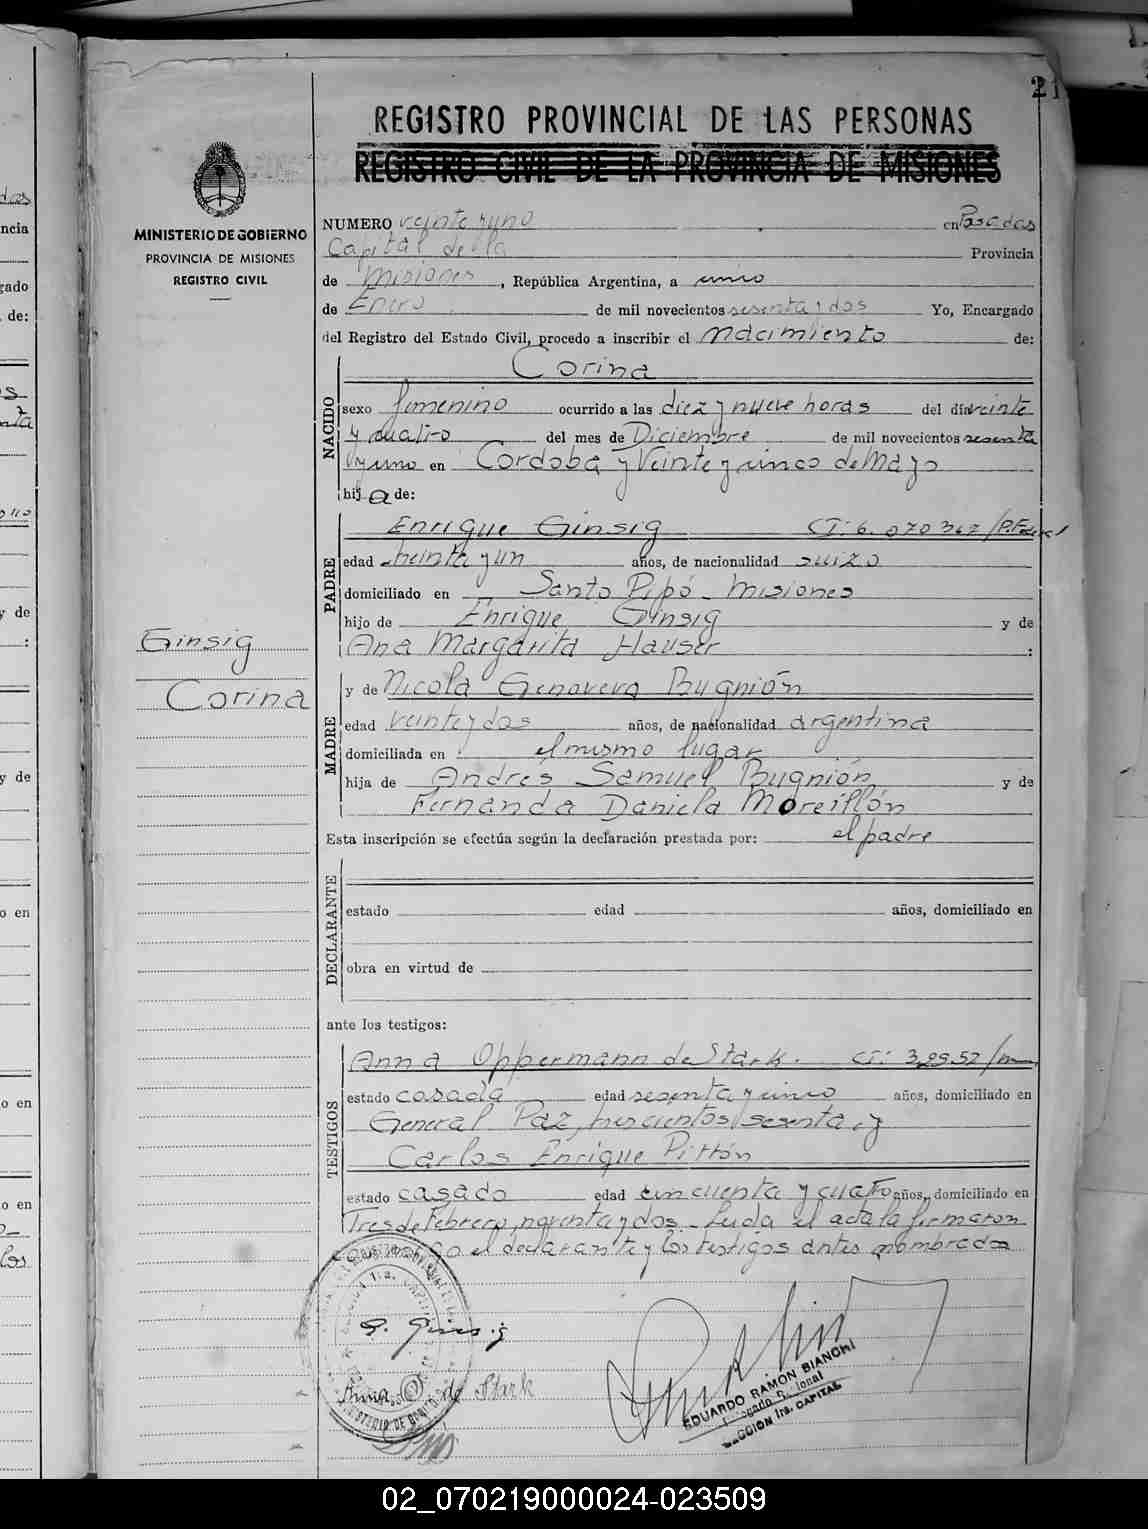 21
REGISTRO PROVINCIAL DE LAS PERSONAS
REGISTRO CIVIL DE LA PROVINCIA DE MISIONES
MINISTERIO DE GOBIERNO
PROVINCIA DE MISIONES
REGISTRO CIVIL
NUMERO veinte y uno en Posadas
Capital de la Provincia
de Misiones, República Argentina, a
de Enero de mil novecientos sesenta y dos Yo, Encargado
del Registro del Estado Civil, procedo a inscribir el Nacimiento de:
Corina
NACIDO
sexo femenino ocurrido a las diez y nueve horas del día veinte
y cuatro del mes de Diciembre de mil novecientos sesenta
y uno en Cordoba y Veinte y cinco de Mayo
hija de:
PADRE
Enrique Ginsig CI: 6.070367/P.Federal
edad treinta y un años, de nacionalidad suizo
domiciliado en Santo Pipó - Misiones
hijo de Enrique Ginsig y de
Ana Margarita Hauser :
Ginsig
Corina
MADRE
y de Nicola Genoveva Bugnión
edad veinte y dos años, de nacionalidad argentina
domiciliada en el mismo lugar
hija de Andrés Samuel Bugnión y de
Fernanda Daniela Moreillón
Esta inscripción se efectúa según la declaración prestada por: el padre
DECLARANTE
estado edad años, domiciliado en
obra en virtud de
ante los testigos:
TESTIGOS
Anna Oppermann de Stark. CI: 32952/m
estado casada edad sesenta y cinco años, domiciliado en
General Paz, trescientos sesenta, y
Carlos Enrique Pittón
estado casado edad cincuenta y cuatro años, domiciliado en
Tres de Febrero, noventa y dos - Leida el acta la firmaron
conmigo el declarante y los testigos antes nombrados
E. Ginsig
Anna O de Stark
EDUARDO RAMON BIANCHI
SECCION 1ra. CAPITAL
02_070219000024-023509